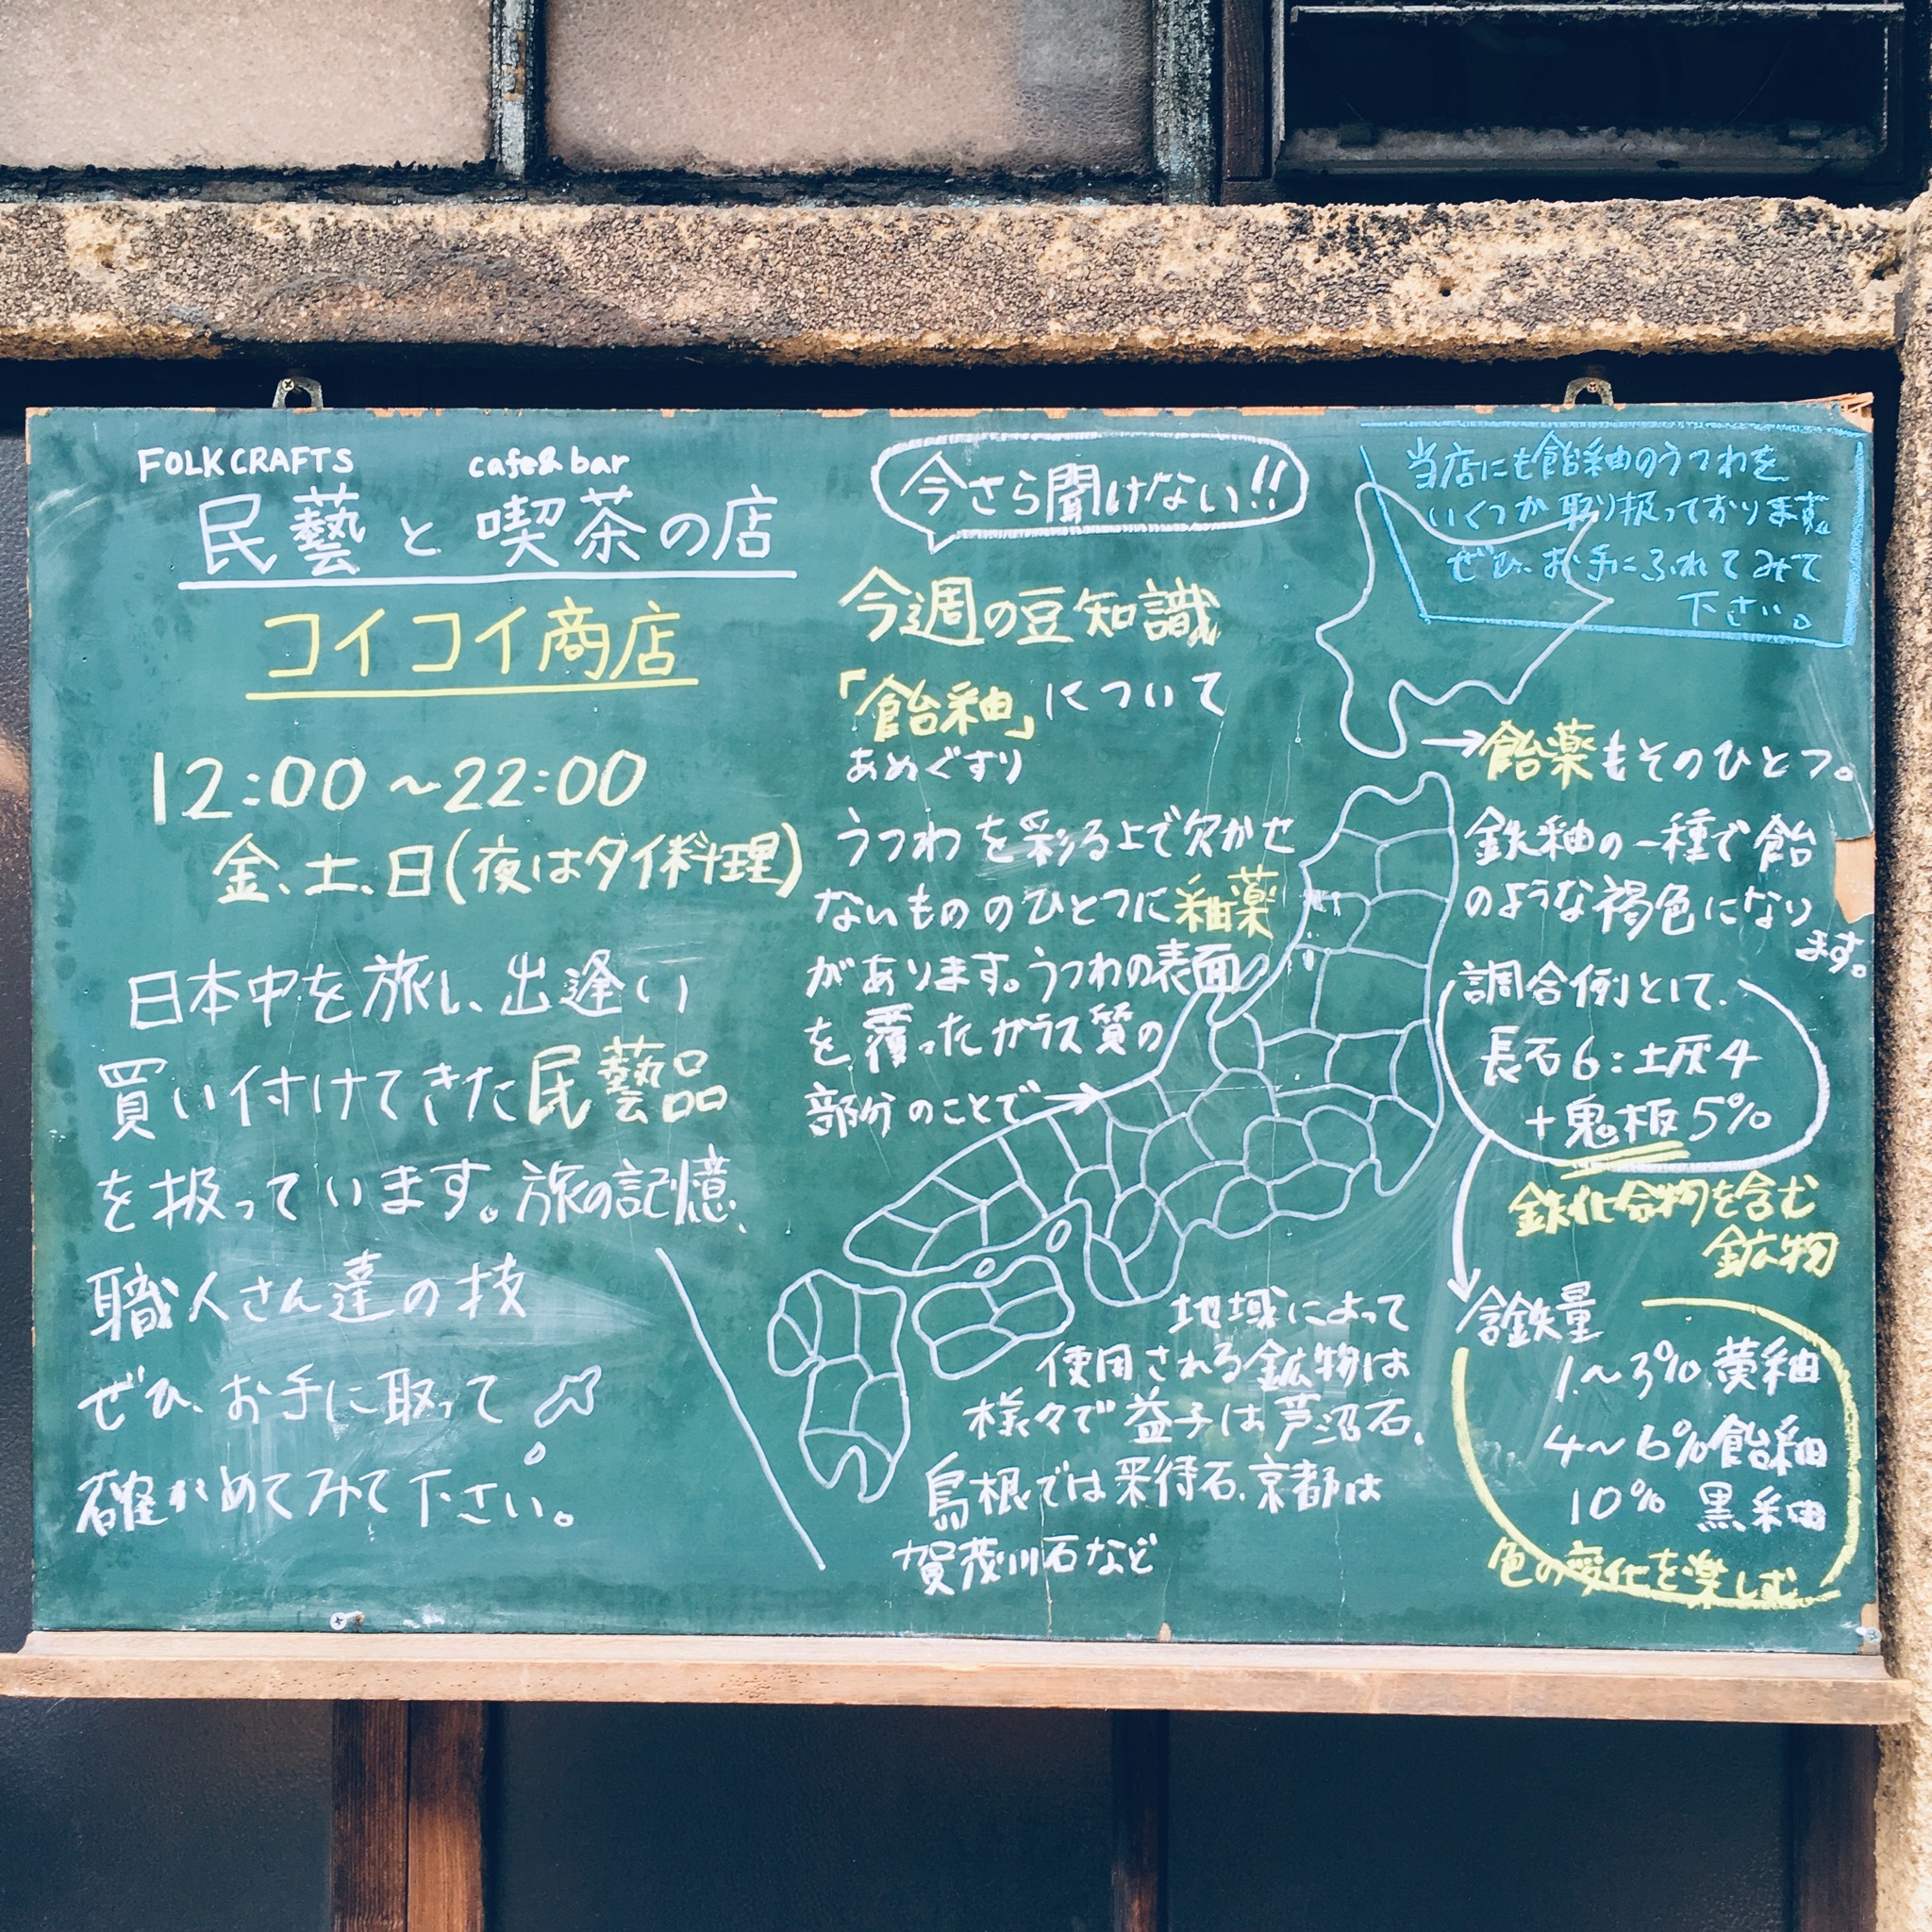 FOLKCRAFTS cafe&bar
民藝と喫茶の店
コイコイ商店
12:00～22:00
金、土、日(夜はタイ料理)
日本中を旅し、出逢い
買い付けてきた民藝品
を扱っています。旅の記憶、
職人さん達の技
ぜひ、お手に取って
確かめてみて下さい。
今さら聞けない!!
今週の豆知識
「飴釉」について
あめぐすり
うつわを彩る上で欠かせ
ないもののひとつに釉薬
があります。うつわの表面
を覆ったガラス質の
部分のことで→
地域によって
使用される鉱物は
様々で益子は芦沼石、
島根では来待石、京都は
賀茂川石など
当店にも飴釉のうつわを
いくつか取り扱っております。
ぜひ、お手にふれてみて
下さい。
→飴薬もそのひとつ。
鉄釉の一種で飴
のような褐色になり
ます。
調合例として、
長石6:土灰4
+鬼板5%
鉄化合物を含む
鉱物
含鉄量
1～3% 黄釉
4～6% 飴釉
10% 黒釉
色の変化を楽しむ